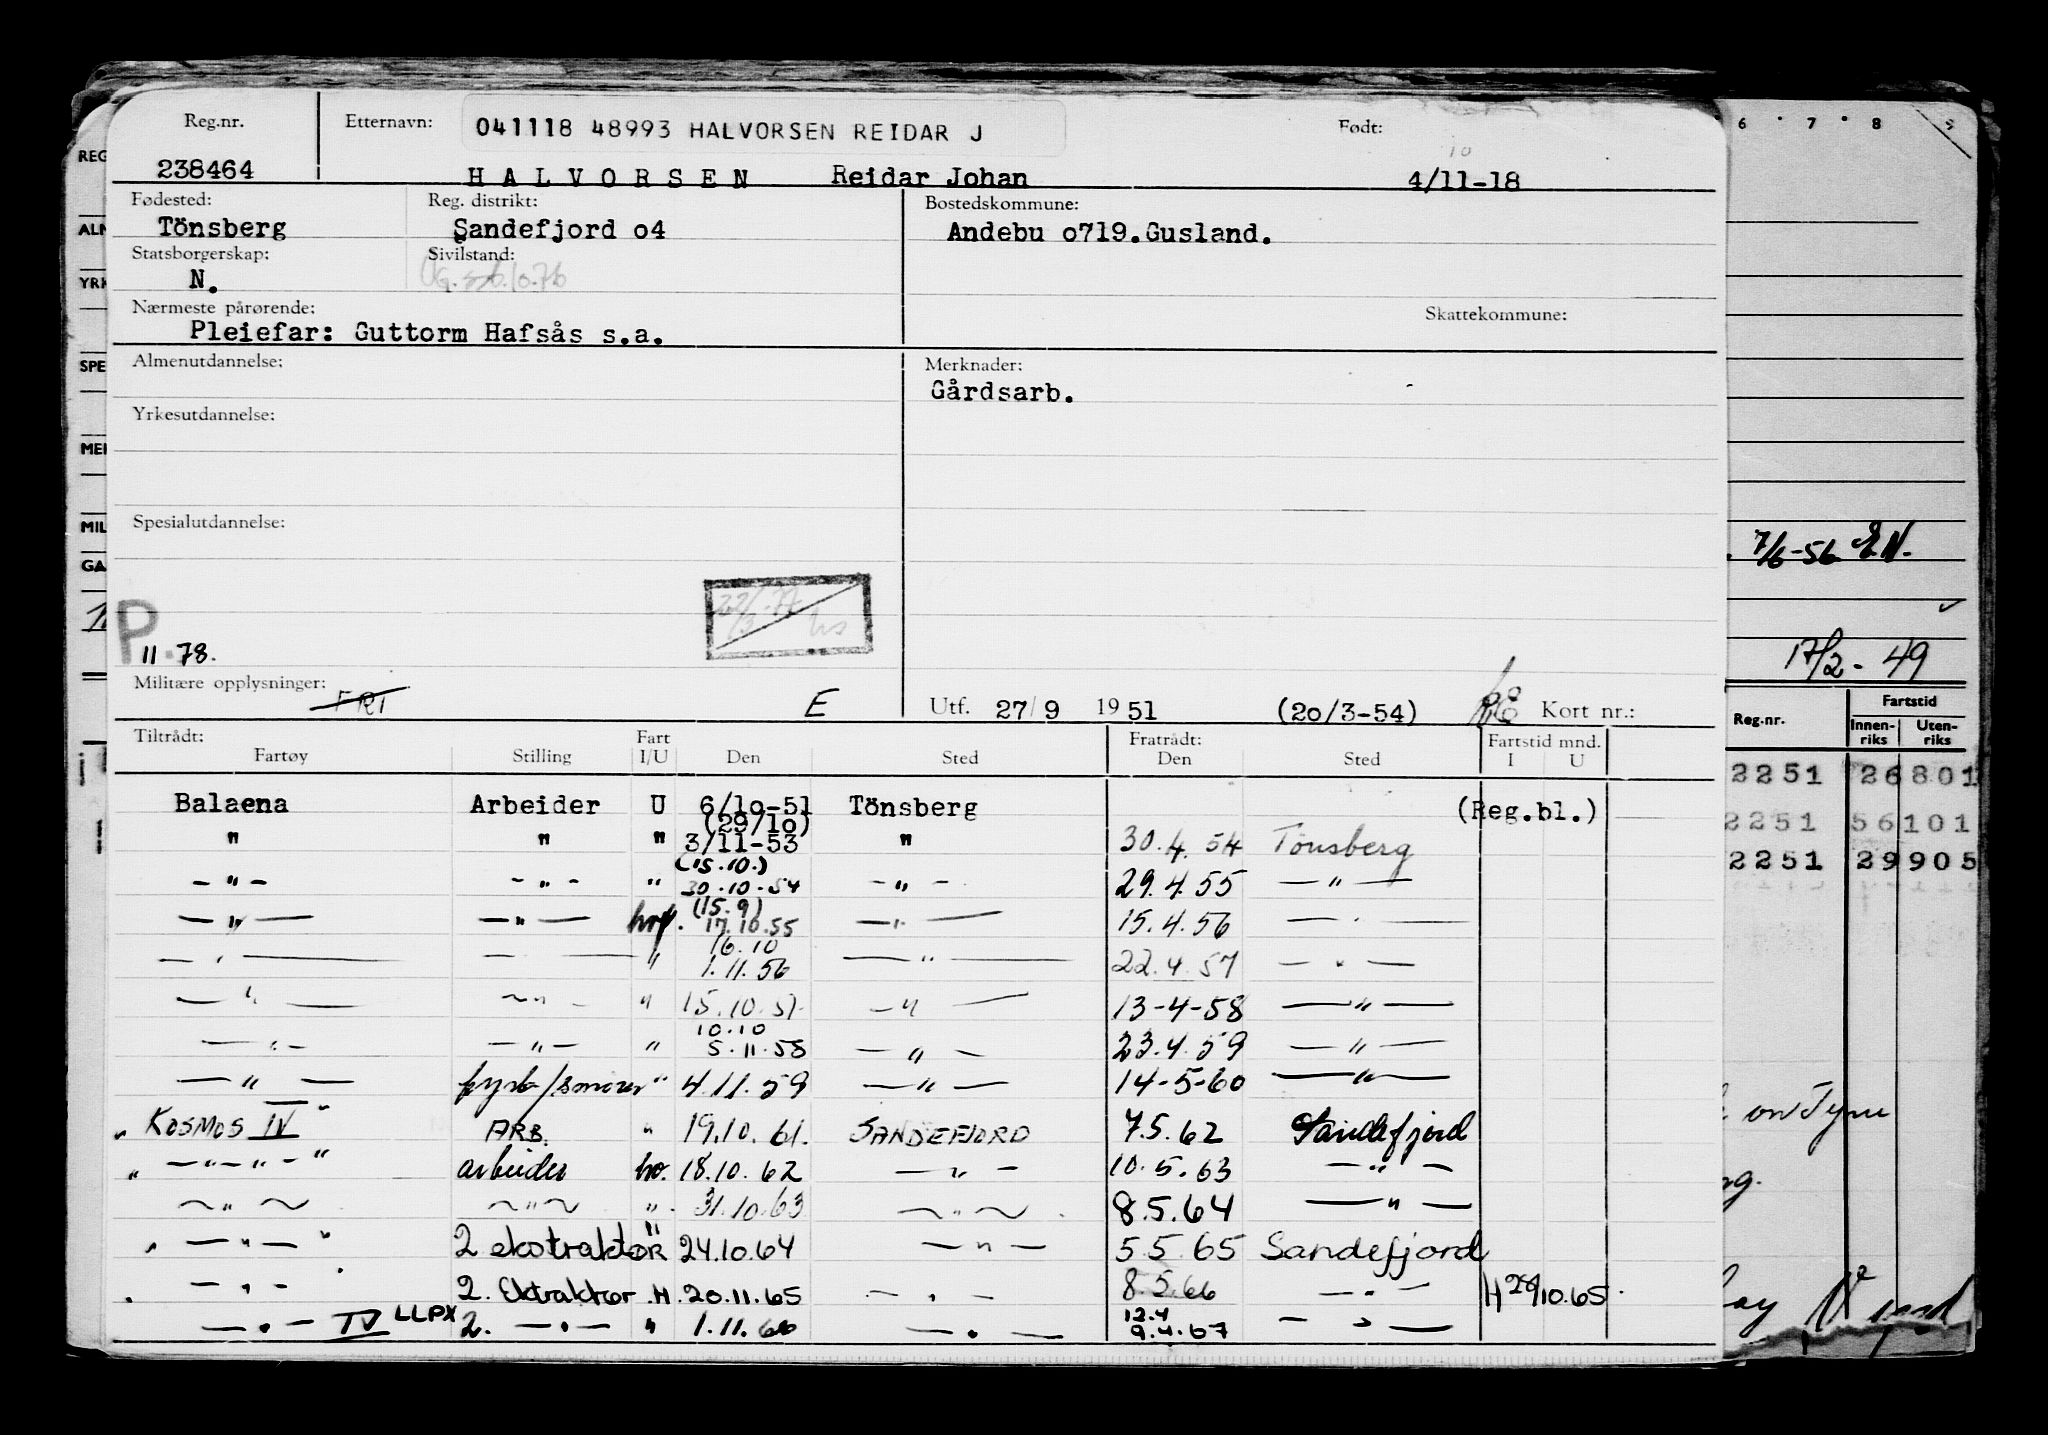 Reg.nr. Etternavn: 041118 48993 HALVORSEN REIDAR J Født:
10
238464 HALVORSEN Reidar Johan 4/11-18
Fødested: Reg. distrikt: Bostedskommune:
Tönsberg Sandefjord o4 Andebu o719.Gusland.
Statsborgerskap: Sivilstand:
N.
Nærmeste pårørende: Skattekommune:
Pleiefar: Guttorm Hafsås s.a.
Almenutdannelse: Merknader:
Gårdsarb.
Yrkesutdannelse:
Spesialutdannelse:
P
11.78.
Militære opplysninger: FRI E Utf. 27/9 1951 (20/3-54) Kort nr.:
Tiltrådt: Fart Fratrådt: Fartstid mnd.
Fartøy Stilling I/U Den Sted Den Sted I U
Balaena Arbeider U 6/10-51 Tönsberg (Reg.bl.)
(29/10)
" " " 3/11-53 " 30.4.54 Tønsberg
(15.10.)
-"- -"- " 30.10.54 -"- 29.4.55 -"-
(15.9)
-"- -"- hvf. 17.10.55 -"- 15.4.56 -"-
16.10
-"- - - " 1.11.56 -"- 22.4.57 -"-
-"- -"- " 15.10.57 -"- 13-4-58 -"-
10.10
-"- -"- " 5.11.58 -"- 23.4.59 -"-
-"- fyrb/smører " 4.11.59 -"- 14-5-60 -"-
" KOSMOS IV " ARB. " 19.10.61. SANDEFJORD 7.5.62 Sandefjord
" -"-"- " arbeider hv. 18.10.62 -"- 10.5.63 -"-
-"- -"- " 31.10.63 -"- 8.5.64 -"-
" -"- " 2 ekstraktør " 24.10.64 -"- 5.5.65 Sandefjord
" -"- " 2. Ekstraktør H. 20.11.65 -"- 8.5.66 -"- H 29/10.65.
12.4
-"- IV LLPX 2. -"- " 1.11.66 -"- 9.4.67 -"-
6 7 8
REG
ALM
YRK
SPE
MER
MIL
GA
7/6-56
17/2-49
Reg.nr. Fartstid
Innen-riks Uten-riks
2251 26801
2251 56101
2251 29905
on Tyne